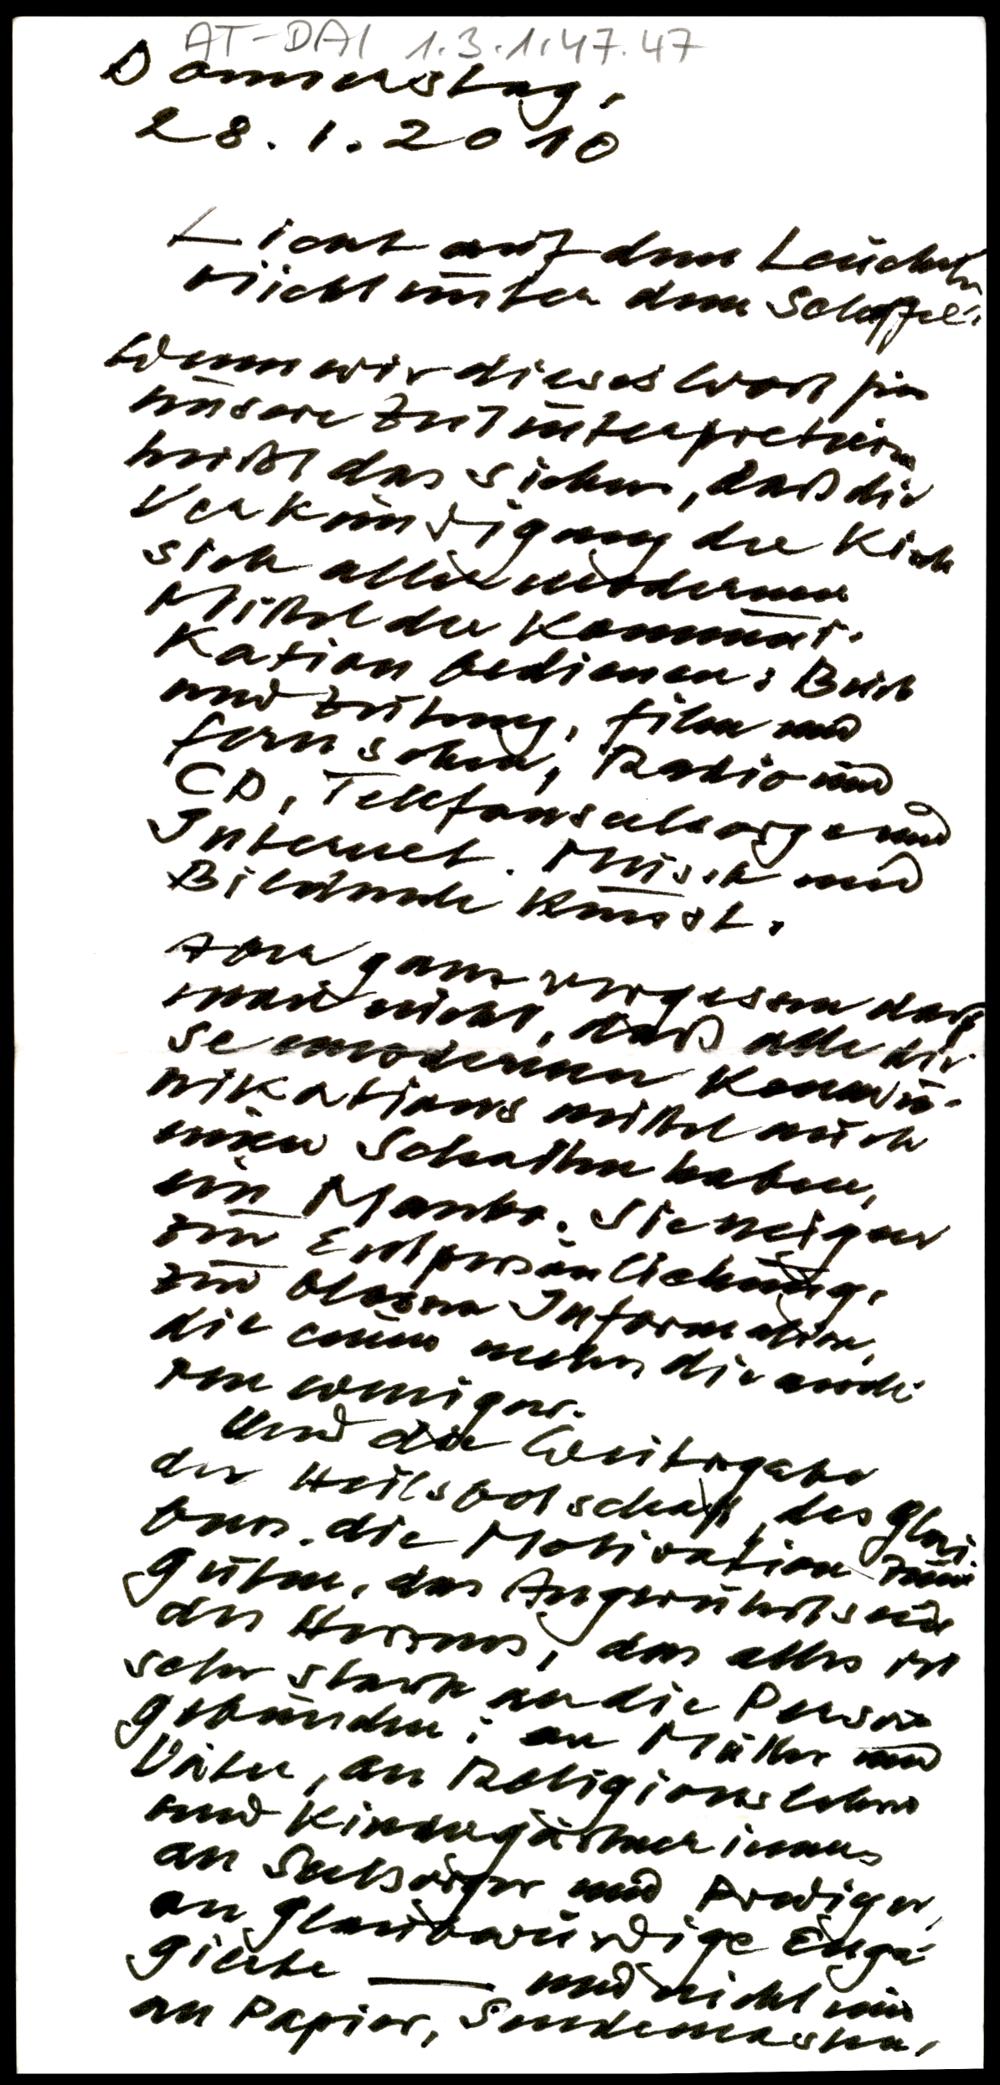 AT-DAI 1.3.1.47.47
Donnerstag,
28.1.2010
Licht auf dem Leuchter
nicht unter dem Scheffel:
Wenn wir dieses Wort für
unsere Zeit interpretieren
heißt das sicher, daß die
Verkündigung der Kirche
sich aller modernen
Mittel der Kommuni-
kation bedienen: Buch
und Zeitung, Film und
Fernsehen, Radio und
CD, Telefonseelsorge und
Internet. Musik und
Bildende Kunst.
Aber ganz vergessen darf
man nicht, daß alle die-
se modernen Kommu-
nikationsmittel auch
einen Schatten haben,
ein Manko. Sie neigen
zur Entpersönlichung,
zur bloßen Information,
die einen mehr, die ande-
ren weniger.
Und die Weitergabe
der Heilsbotschaft, des Glau-
bens, die Motivation zum
Guten, das Angerührtsein
des Herzens, das alles ist
sehr stark an die Person
gebunden: an Mütter und
Väter, an Religionslehrer
und Kindergärtnerinnen
an Seelsorger und Prediger,
an glaubwürdige Enga-
gierte — und nicht nur
an Papier, Sendemasten,